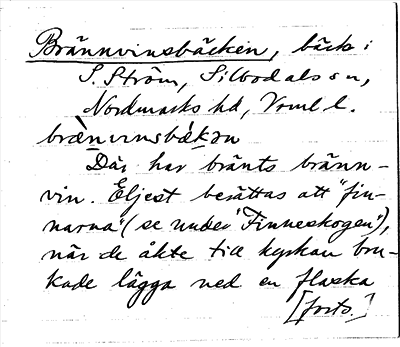 Brännvinsbäcken, bäck i
S. Ström, Silbodals sn,
Nordmarks hd, Vrml l.
brænvinsbækən
Där har bränts bränn-
vin. Eljest berättas att "fin-
narna" (se under "Finneskogen"),
när de åkte till kyrkan bru-
kade lägga ned en flaska
[forts.]